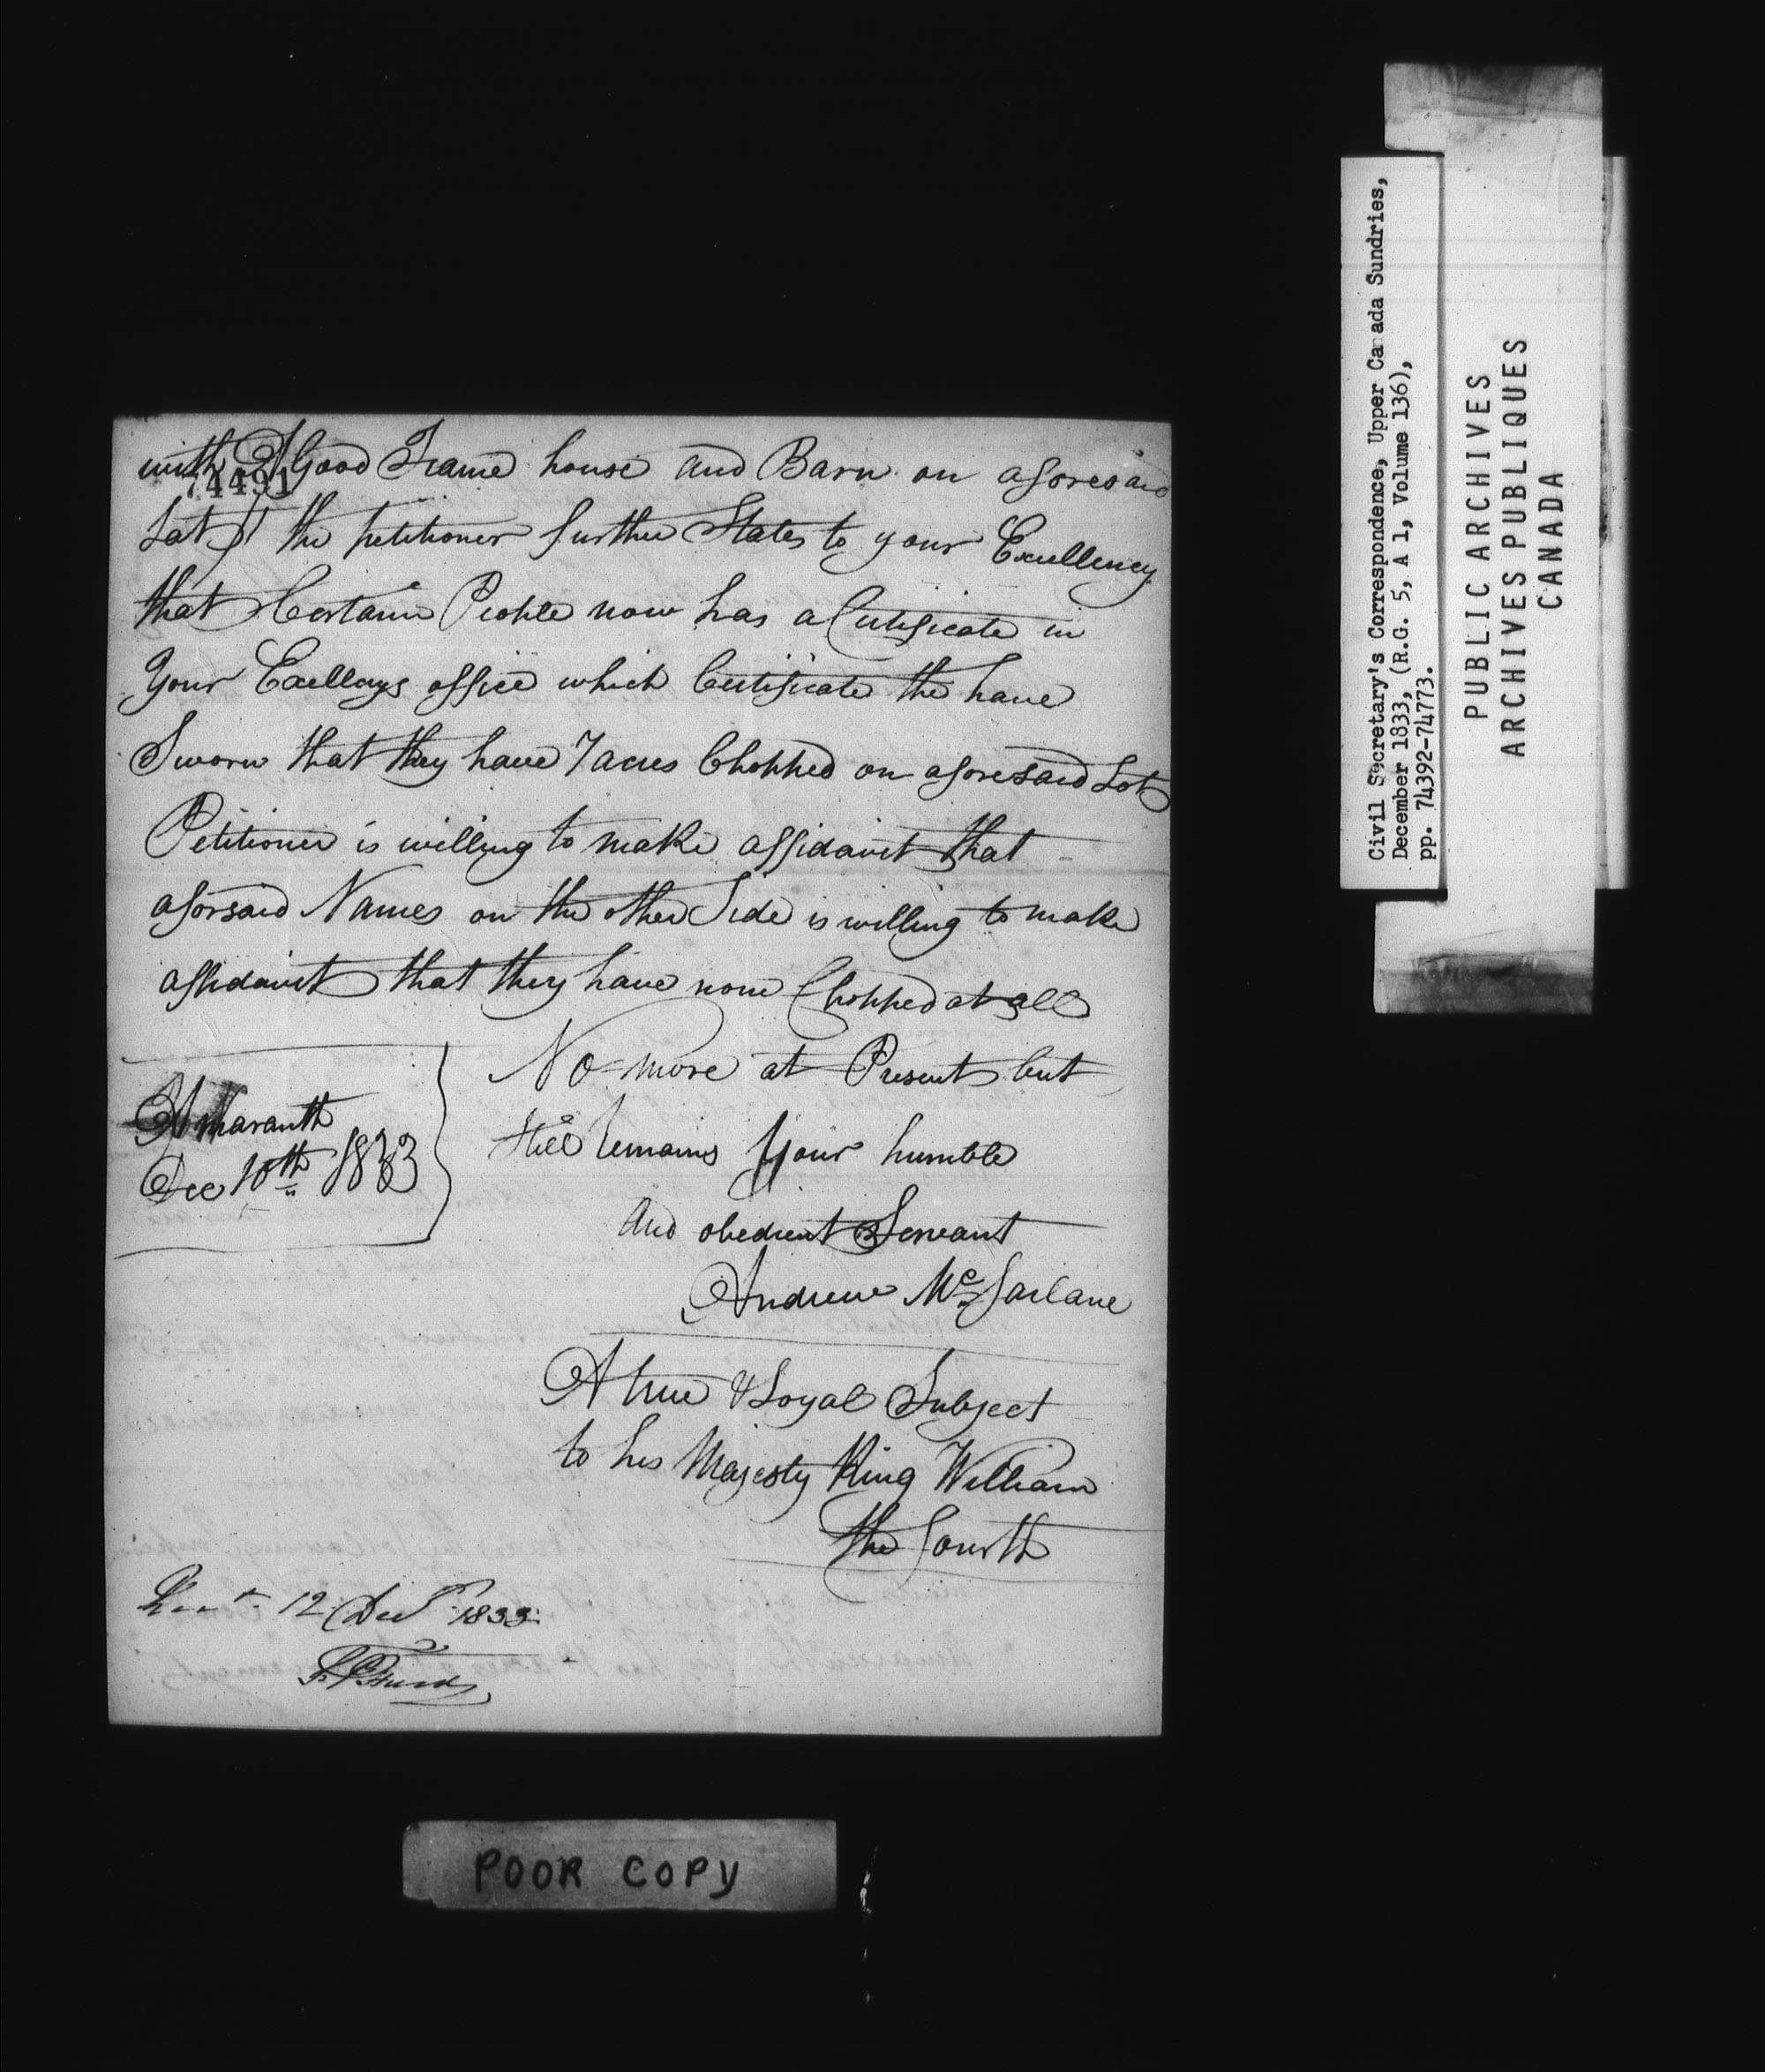 with A Good Frame house and Barn on aforesaid
74491
Lot // the petitioner further States to your Excellency
that Certain People now has a Certificate in
Your Exellays office which Certificate the have
Sworn that they have 7 acres Chopped on aforesaid Lot
Petitioner is willing to make affidavit that
aforsaid Names on the other Side is willing to make
affidavit that they have none Chopped at all
No more at Present but
Still remains Your humble
and obedient Servant
Andrew McFarlane
Amaranth
Dec 10th 1833
A true & Loyal Subject
to his Majesty King William
the fourth
12 Decr 1833
POOR COPY
Civil Secretary's Correspondence, Upper Canada Sundries,
December 1833, (R.G. 5, A 1, Volume 136),
pp. 74392-74773.
PUBLIC ARCHIVES
ARCHIVES PUBLIQUES
CANADA